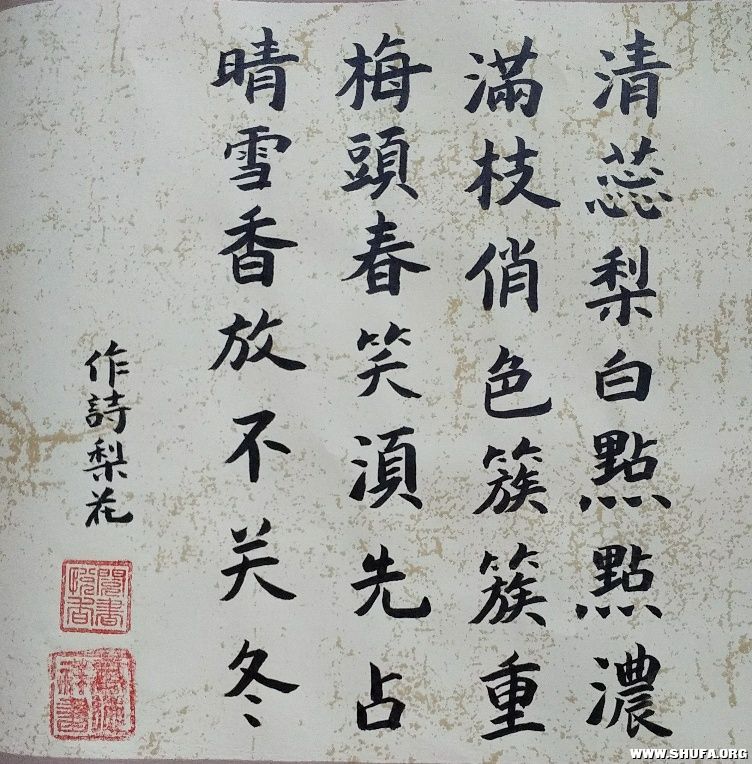 清蕊梨白點點濃
滿枝俏色簇簇重
梅頭春笑湏先占
晴雪香放不关冬
作詩梨花
WWW.SHUFA.ORG